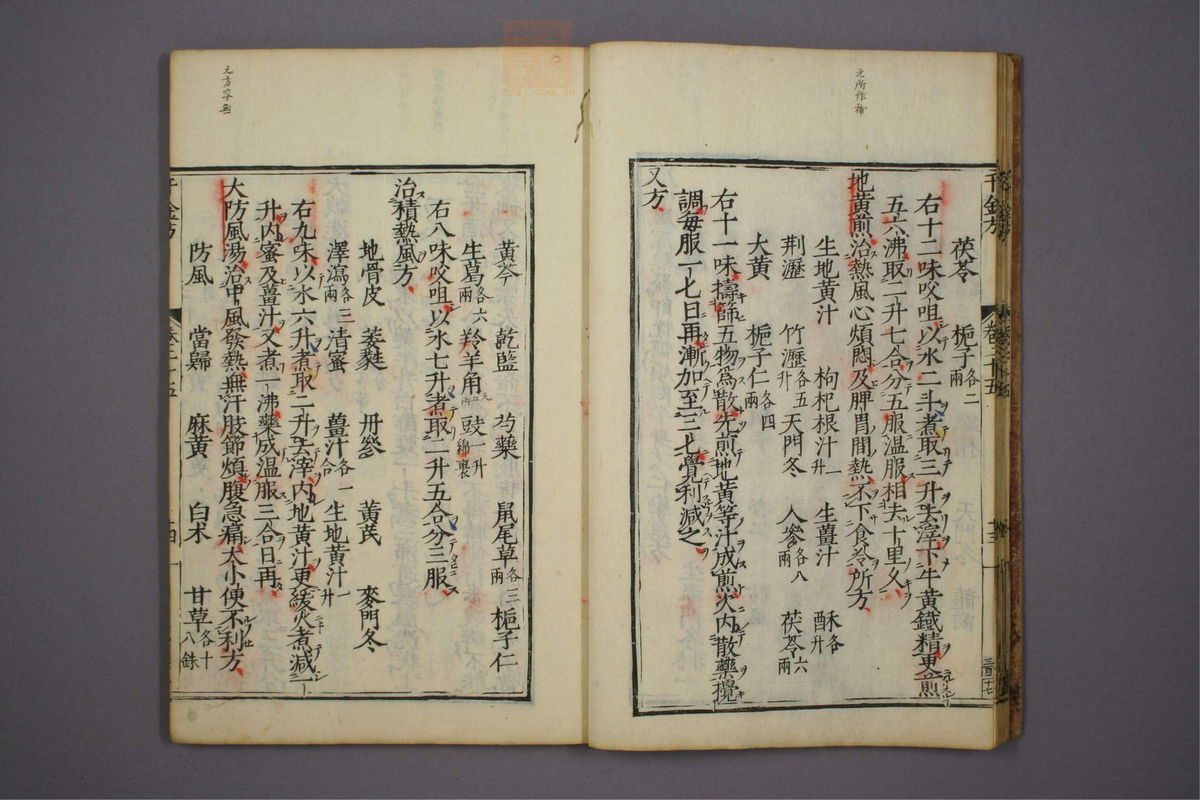 元所作補
千金方
茯苓 梔子各二兩
右十二味㕮咀以水二斗煮取三升去滓下牛黃鐵精更煎
五六沸取二升七合分五服溫服相去十里久
地黃煎治熱風心煩悶及脾胃間熱不下食冷所方
生地黃汁 枸杞根汁一升 生薑汁 酥各
荆瀝 竹瀝各五升 天門冬 人參各八兩 茯苓六
大黃 梔子仁各四兩
右十一味擣篩五物爲散先煎地黃等汁成煎火內散藥攪
調每服一七日再漸加至三七覺利減之
又方
元方字無
黃芩 乾藍 芍藥 鼠尾草各三兩 梔子仁
生葛各六兩 羚羊角 豉一升綿裹
右八味㕮咀以水七升煮取二升五合分三服
治積熱風方
地骨皮 萎蕤 丹參 黃芪 麥門冬
澤瀉各三兩 清蜜 薑汁各一合 生地黃汁一升
右九味以水六升煮取二升去滓內地黃汁更緩火煮減一
升內蜜及薑汁又煮一沸藥成溫服三合日再
大防風湯治中風發熱無汗肢節煩腹急痛大小便不利方
防風 當歸 麻黃 白朮 甘草各十八銖